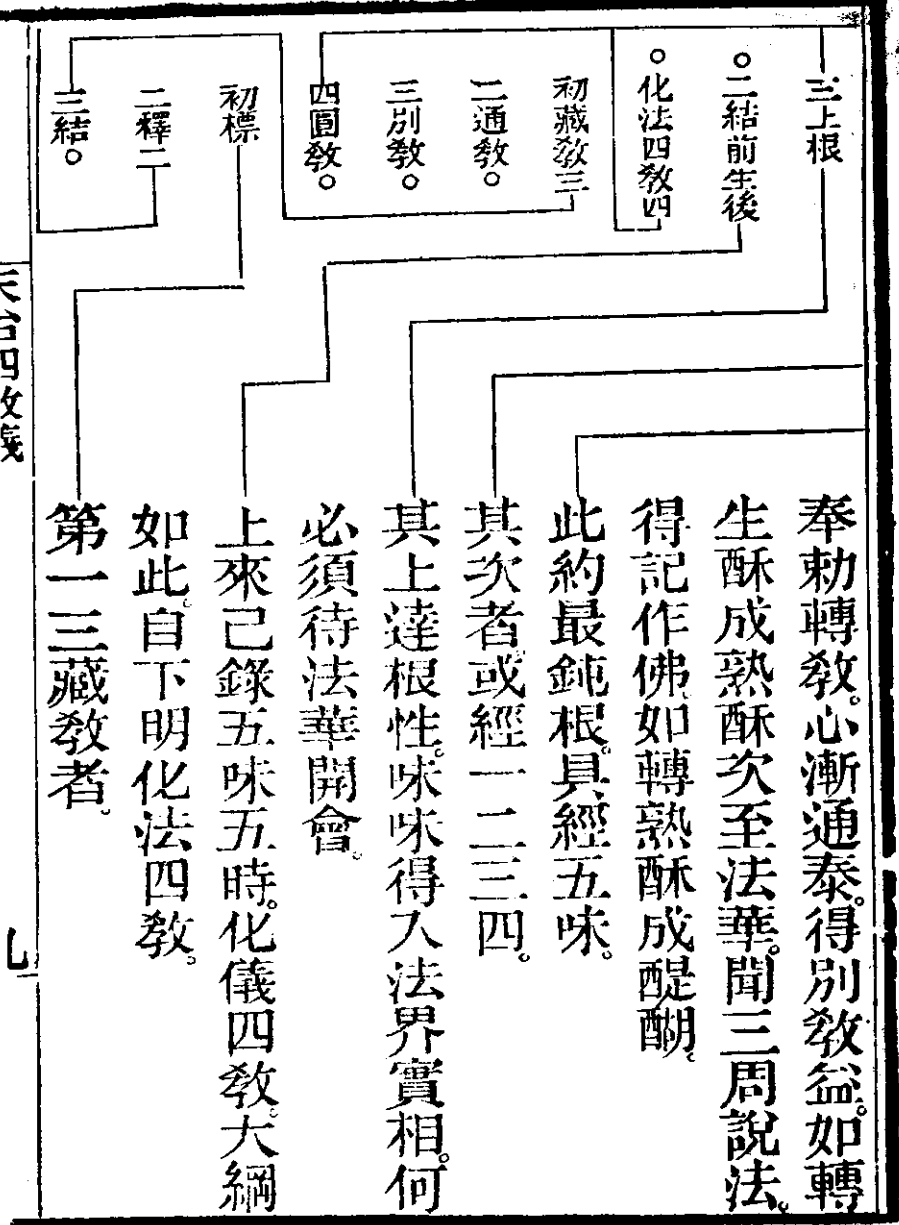 三上根
二結前生後
化法四教四
初藏教三
二通教。
三別教。
四圓教。
初標
二釋二
三結。
奉勅轉教。心漸通泰。得別教益。如轉
生酥成熟酥次至法華。聞三周說法。
得記作佛。如轉熟酥成醍醐。
此約最鈍根。具經五味。
其次者。或經一二三四。
其上達根性。味味得入法界實相。何
必須待法華開會。
上來已錄五味五時。化儀四教。大綱
如此。自下明化法四教。
第一三藏教者。
天台四教儀